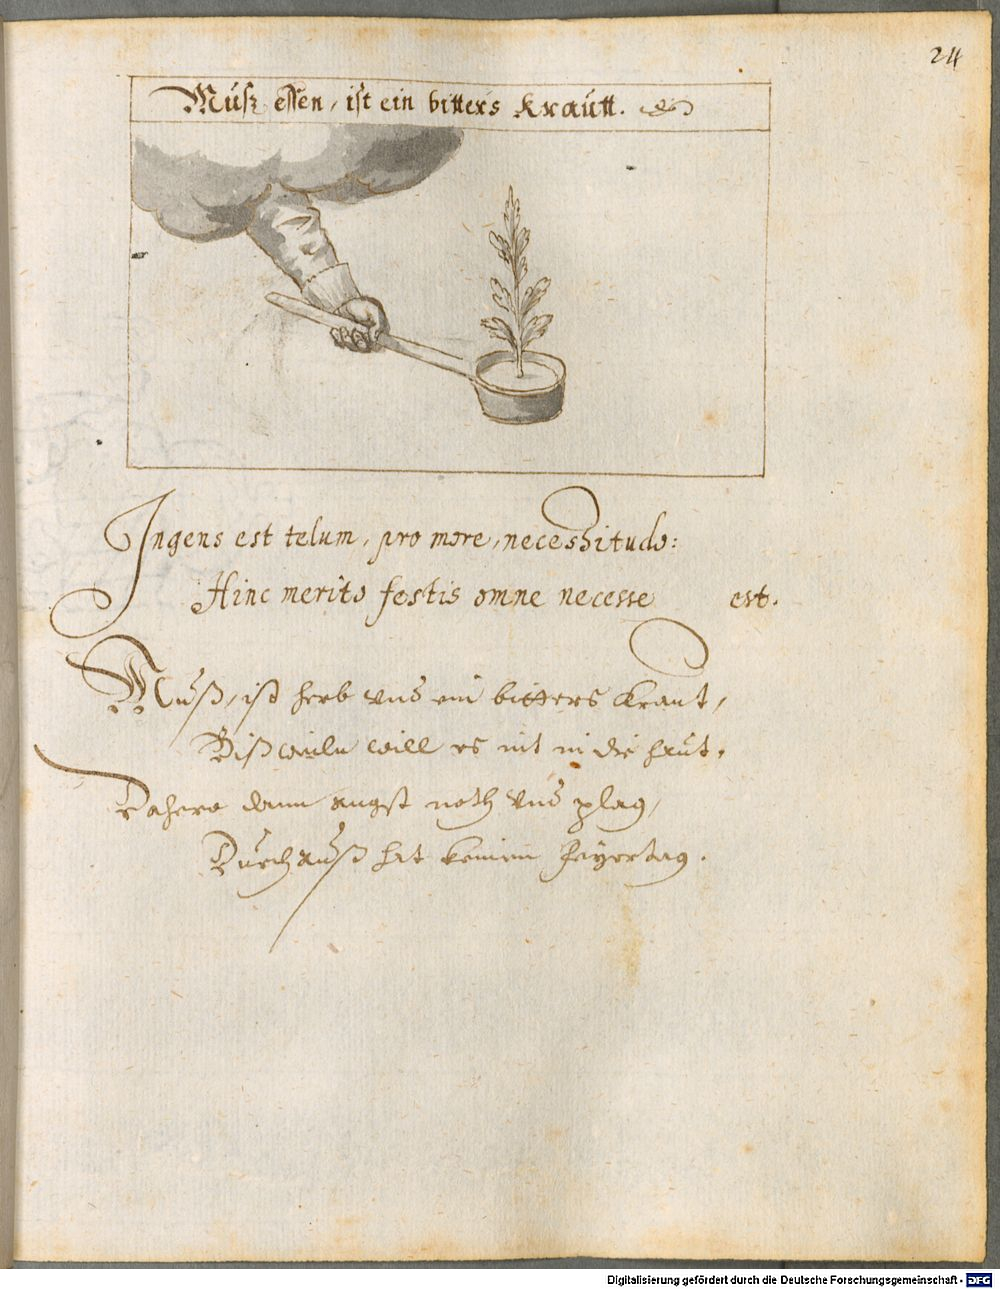 24
Muß essen, ist ein bitters Krautt.
Ingens est telum, pro more, necessitudo:
Hinc merito festis omne necesse est.
Muß, ist herb und ein bitters Kraut,
Bißweiln will es nit in die haut,
Dahero dann angst noth und plag,
Durchauß hat keinen Feyertag.
Digitalisierung gefördert durch die Deutsche Forschungsgemeinschaft - DFG